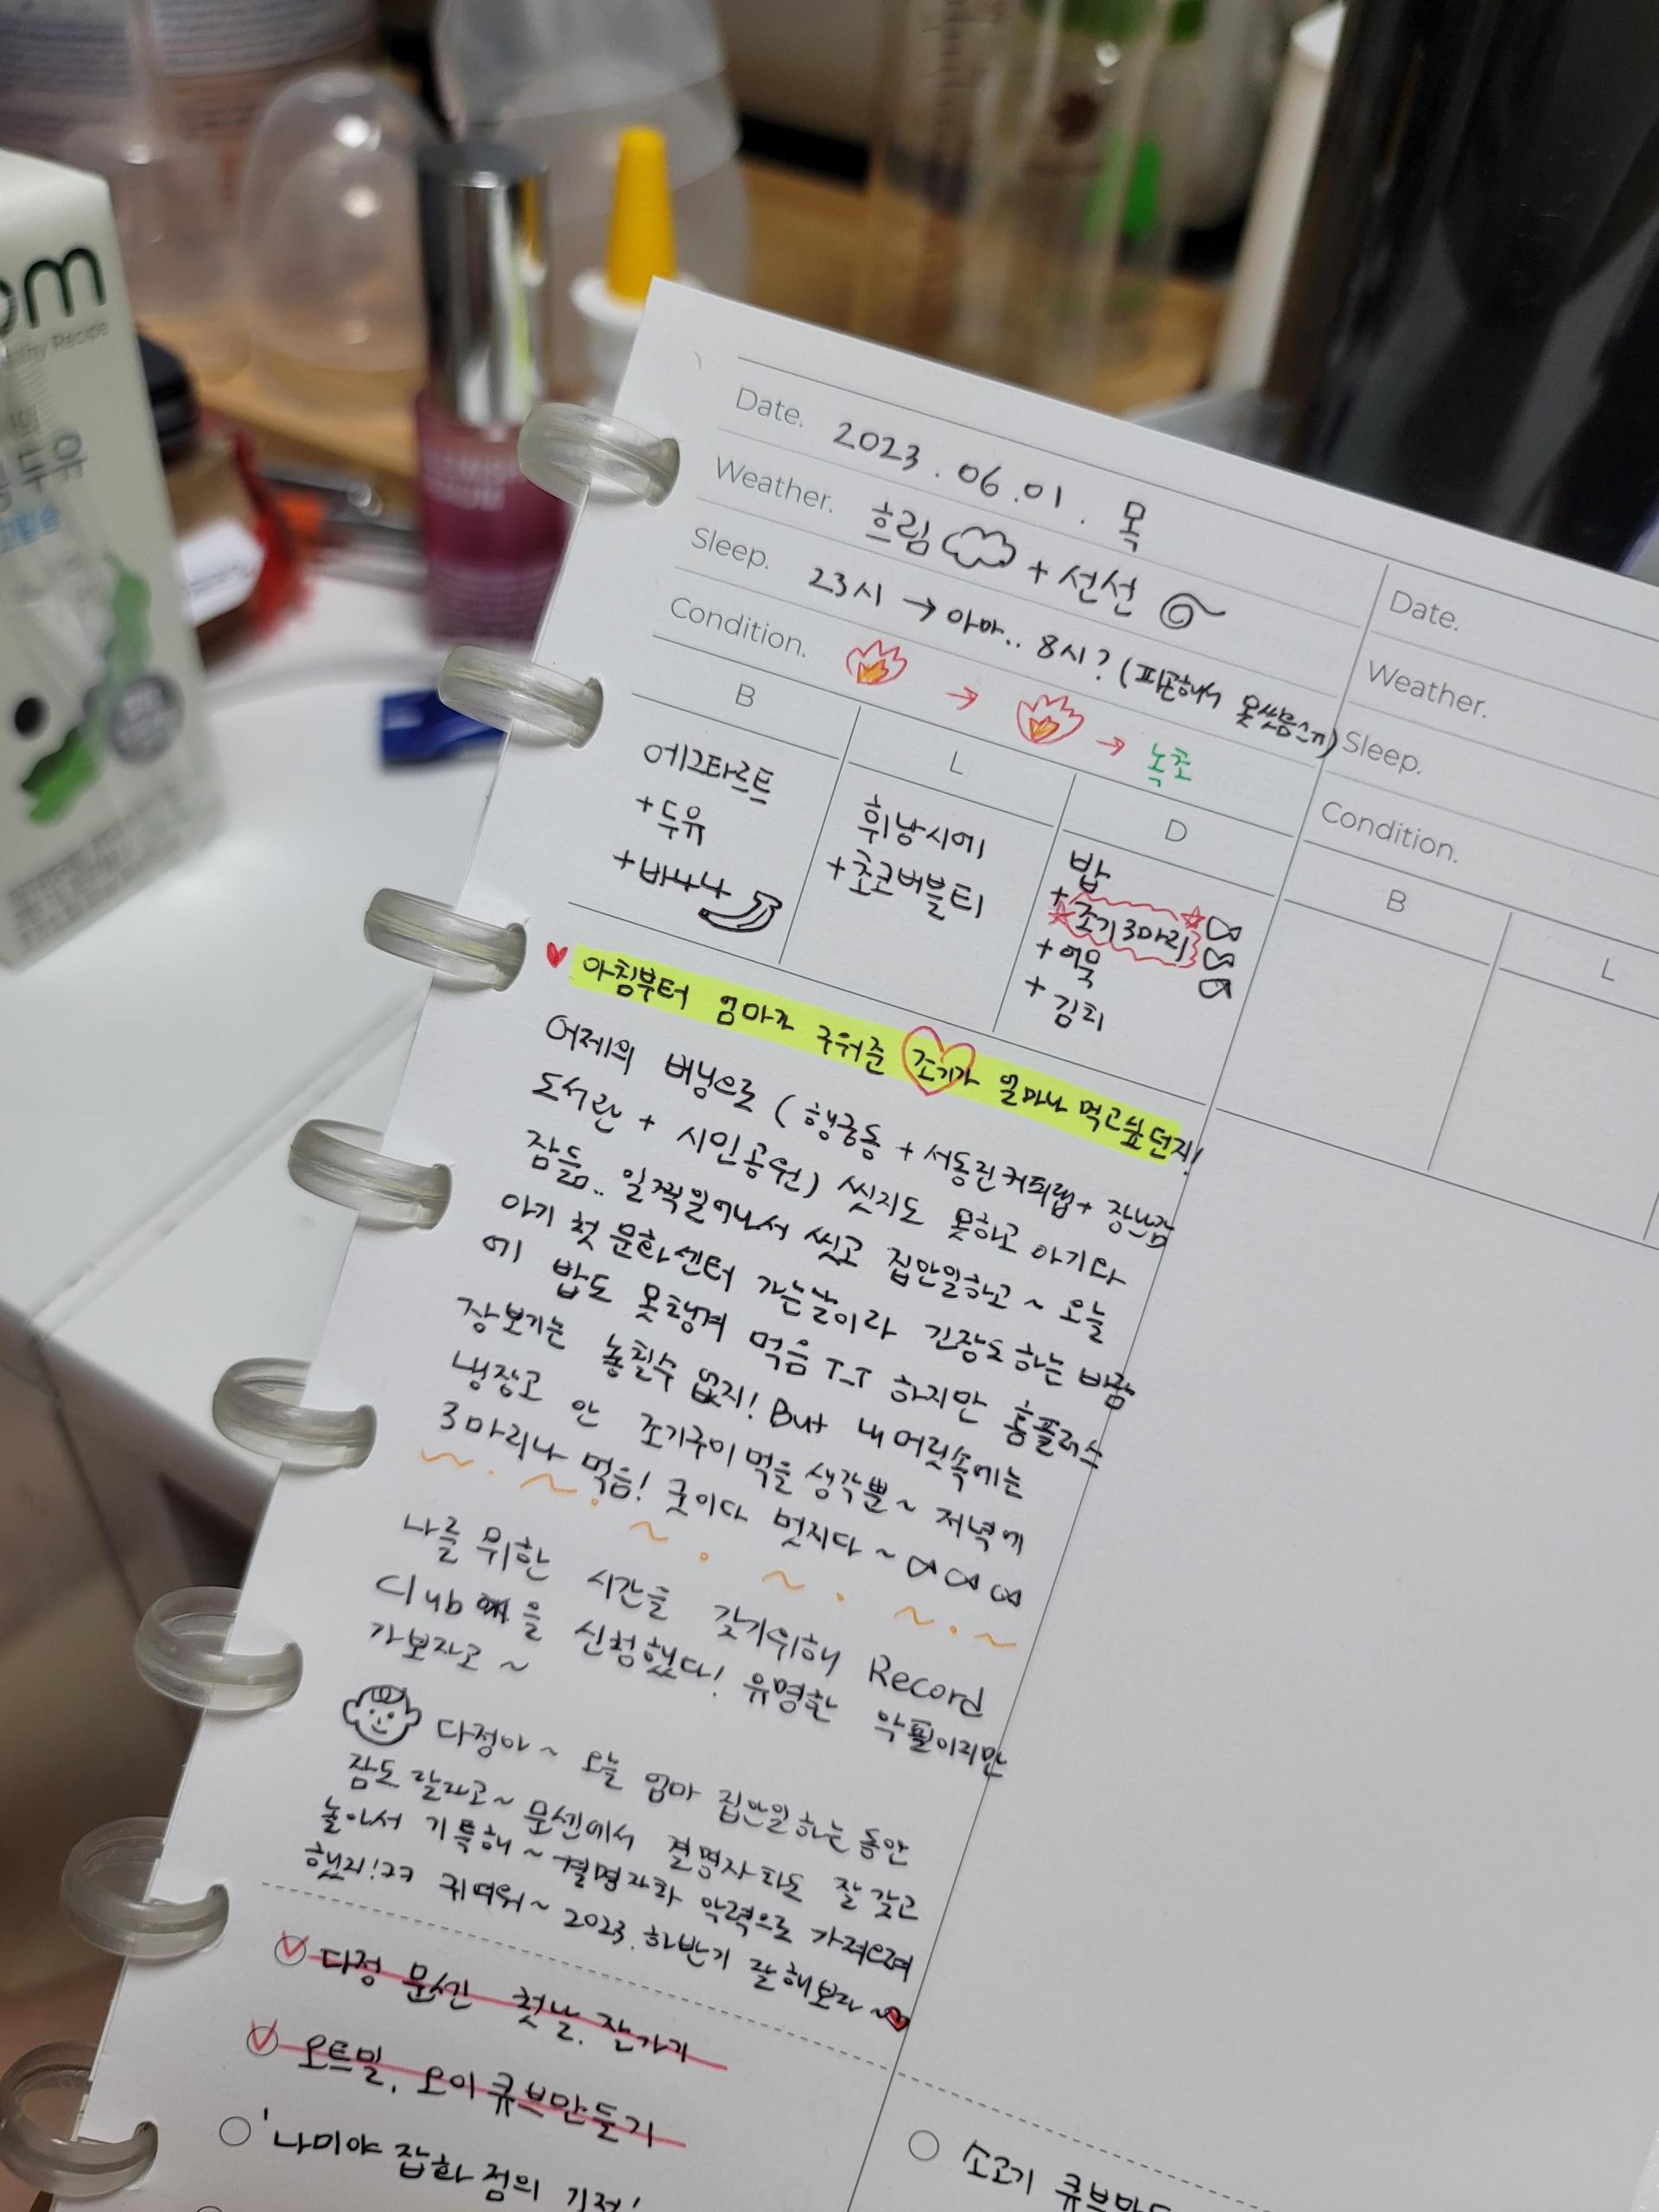 Date. 2023. 06. 01. 목
Weather. 흐림 + 선선
Sleep. 23시 → 아마.. 8시? (피곤해서 못씻음ㅠ)
Condition. → → 녹초
B L D
에그타르트
+두유
+바나나
휘낭시에
+초코버블티
밥
+조기3마리
+어묵
+김치
아침부터 엄마가 구워준 조기가 얼마나 먹고싶던지!
어제의 버닝으로 (행궁동 + 서동진커피랩+ 장난감
도서관 + 시민공원) 씻지도 못하고 아기와
잠듦.. 일찍일어나서 씻고 집안일하고~ 오늘
아기 첫 문화센터 가는날이라 긴장도 하는 바람
에 밥도 못챙겨 먹음 T_T 하지만 홈플러스
장보기는 놓칠수 없지! But 내 머릿속에는
냉장고 안 조기구이 먹을 생각뿐~ 저녁에
3마리나 먹음! 굿이다 멋지다~
나를 위한 시간을 갖기위해 Record
Club을 신청했다! 유명한 악필이지만
가보자고~
다정아~ 오늘 엄마 집안일 하는 동안
잠도 잘자고~ 문센에서 결명자와도 잘 갖고
놀아서 기특해~ 결명자와 악력으로 가져오려
했지!ㅋㅋ 귀여워~ 2023. 하반기 잘해보자~
다정 문센 첫날. 잘가기
오트밀, 오이 큐브만들기
'나미야 잡화점의 기적'
Date.
Weather.
Sleep.
Condition.
B L
소고기 큐브만들
om
thy Recipe
두유